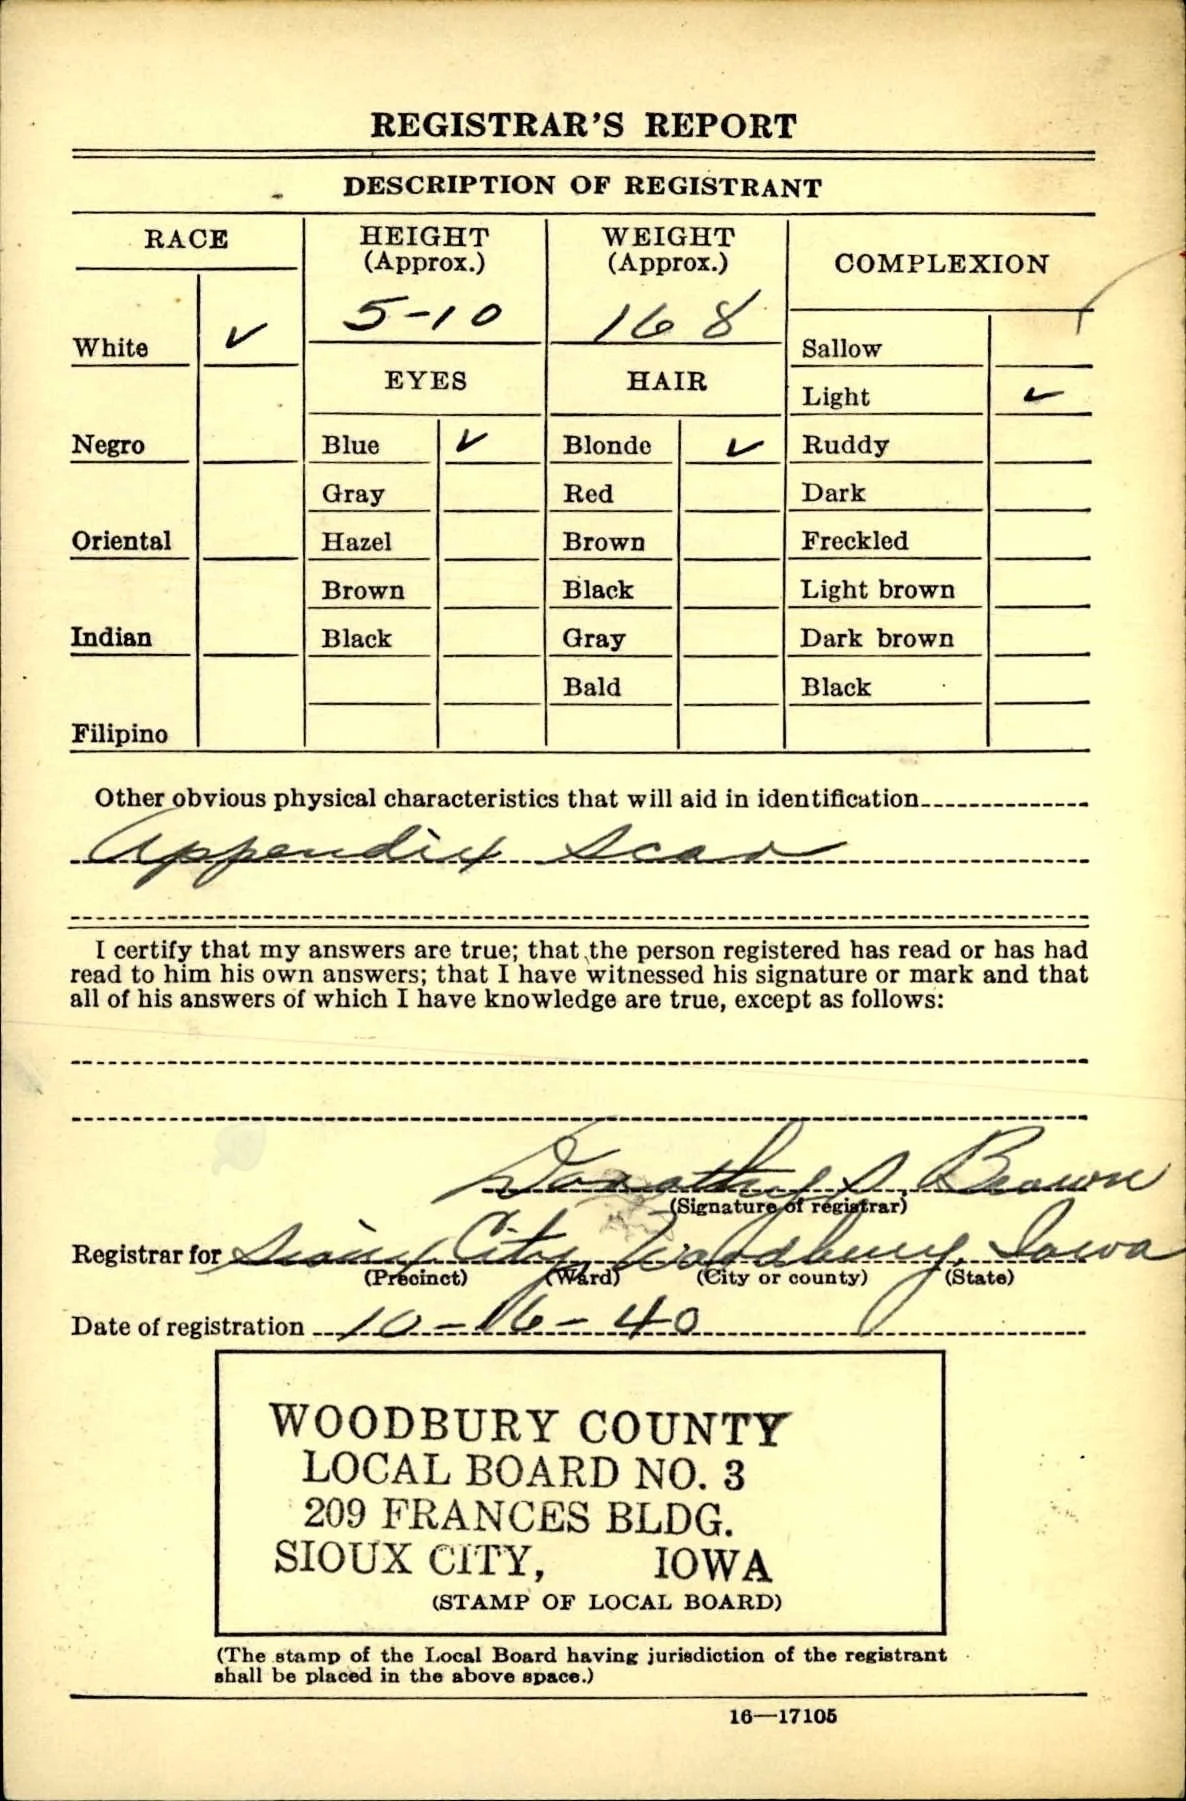 REGISTRAR'S REPORT
DESCRIPTION OF REGISTRANT
RACE
HEIGHT
(Approx.)
WEIGHT
(Approx.)
COMPLEXION
5-10
168
White ✓
Sallow
EYES
HAIR
Light ✓
Negro
Blue ✓
Blonde ✓
Ruddy
Gray
Red
Dark
Oriental
Hazel
Brown
Freckled
Brown
Black
Light brown
Indian
Black
Gray
Dark brown
Bald
Black
Filipino
Other obvious physical characteristics that will aid in identification
Appendix Scar
I certify that my answers are true; that the person registered has read or has had
read to him his own answers; that I have witnessed his signature or mark and that
all of his answers of which I have knowledge are true, except as follows:
Dorothy S. Brown
(Signature of registrar)
Registrar for Sioux City, Woodbury, Iowa
(Precinct) (Ward) (City or county) (State)
Date of registration 10-16-40
WOODBURY COUNTY
LOCAL BOARD NO. 3
209 FRANCES BLDG.
SIOUX CITY, IOWA
(STAMP OF LOCAL BOARD)
(The stamp of the Local Board having jurisdiction of the registrant
shall be placed in the above space.)
16—17105